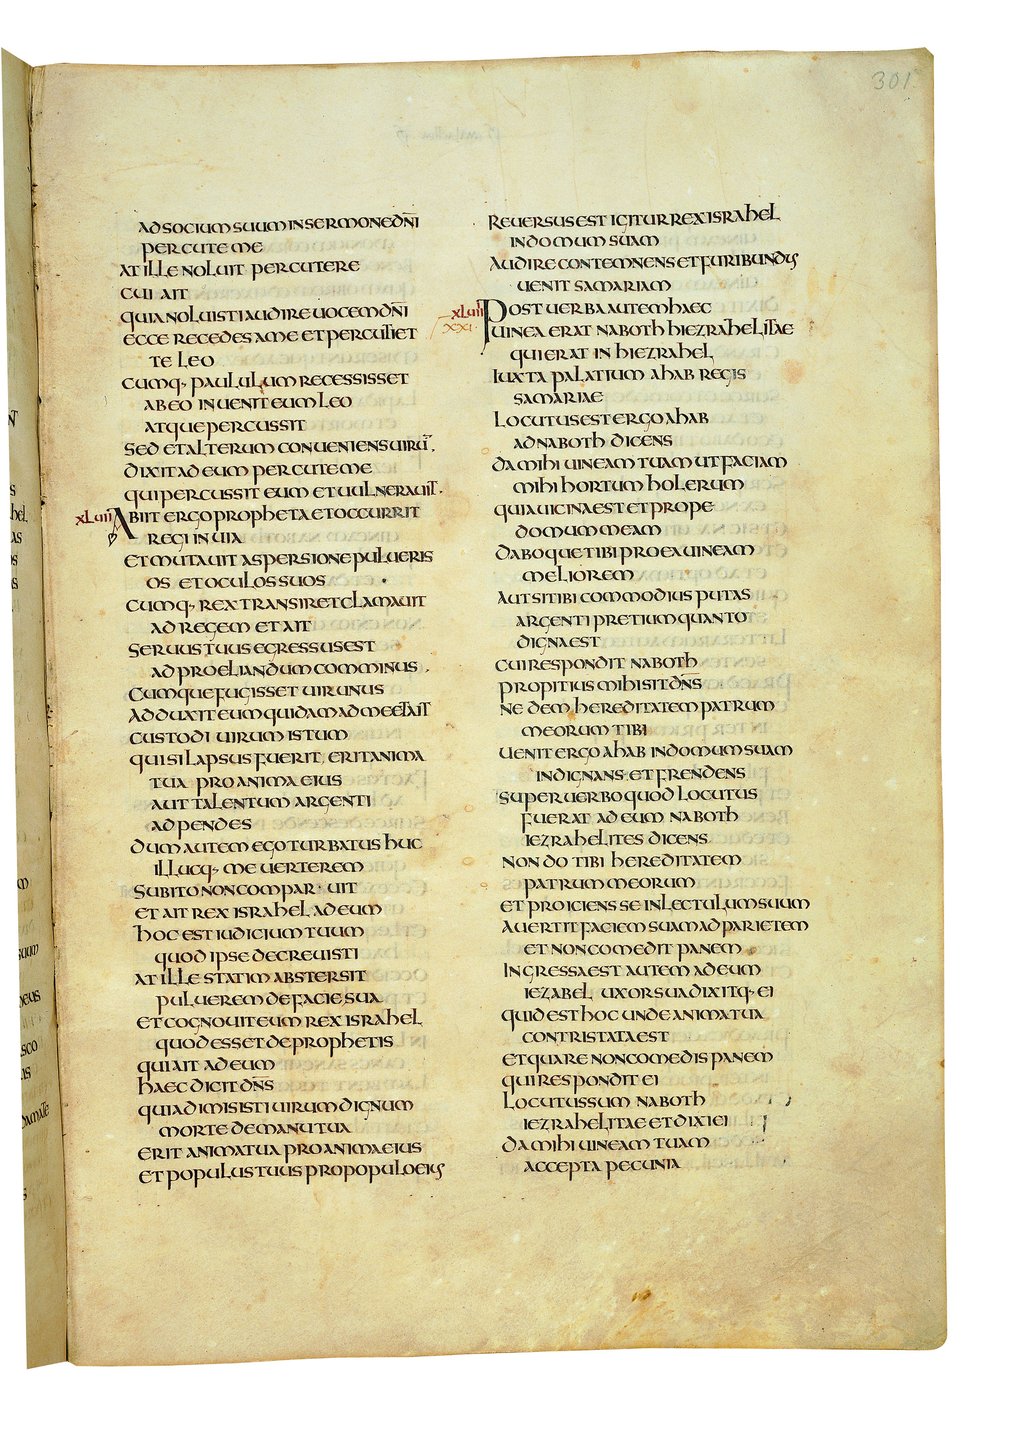 301
ADSOCIUM SUUM IN SERMONE DN̄I
PERCUTE ME
AT ILLE NOLUIT PERCUTERE
CUI AIT
QUIA NOLUISTI AUDIRE UOCEM DN̄I
ECCE RECEDES A ME ET PERCUTIET
TE LEO
CUMQ· PAULULUM RECESSISSET
AB EO INUENIT EUM LEO
ATQUE PERCUSSIT
SED ET ALTERUM CONUENIENS UIRŪ
DIXIT AD EUM PERCUTE ME
QUI PERCUSSIT EUM ET UULNERAUIT
XLUII ABIIT ERGO PROPHETA ET OCCURRIT
REGI IN UIA
ET MUTAUIT ASPERSIONE PULUERIS
OS ET OCULOS SUOS
CUMQ· REX TRANSIRET CLAMAUIT
AD REGEM ET AIT
SERUUS TUUS EGRESSUS EST
AD PROELIANDUM COMMINUS
CUMQUE FUGISSET UIR UNUS
ADDUXIT EUM QUIDAM AD ME ET AIT
CUSTODI UIRUM ISTUM
QUI SI LAPSUS FUERIT ERIT ANIMA
TUA PRO ANIMA EIUS
AUT TALENTUM ARGENTI
ADPENDES
DUM AUTEM EGO TURBATUS HUC
ILLUCQ· ME UERTEREM
SUBITO NON COMPARUIT
ET AIT REX ISRAHEL AD EUM
HOC EST IUDICIUM TUUM
QUOD IPSE DECREUISTI
AT ILLE STATIM ABSTERSIT
PULUEREM DE FACIE SUA
ET COGNOUIT EUM REX ISRAHEL
QUOD ESSET DE PROPHETIS
QUI AIT AD EUM
HAEC DICIT DN̄S
QUIA DIMISISTI UIRUM DIGNUM
MORTE DE MANU TUA
ERIT ANIMA TUA PRO ANIMA EIUS
ET POPULUS TUUS PRO POPULO EIUS
REUERSUS EST IGITUR REX ISRAHEL
IN DOMUM SUAM
AUDIRE CONTEMNENS ET FURIBUNDUS
UENIT SAMARIAM
XLUIII POST UERBA AUTEM HAEC
XXI UINEA ERAT NABOTH HIEZRAHELITAE
QUI ERAT IN HIEZRAHEL
IUXTA PALATIUM AHAB REGIS
SAMARIAE
LOCUTUS EST ERGO AHAB
AD NABOTH DICENS
DA MIHI UINEAM TUAM UT FACIAM
MIHI HORTUM HOLERUM
QUIA UICINA EST ET PROPE
DOMUM MEAM
DABOQUE TIBI PRO EA UINEAM
MELIOREM
AUT SI TIBI COMMODIUS PUTAS
ARGENTI PRETIUM QUANTO
DIGNA EST
CUI RESPONDIT NABOTH
PROPITIUS MIHI SIT DN̄S
NE DEM HEREDITATEM PATRUM
MEORUM TIBI
UENIT ERGO AHAB IN DOMUM SUAM
INDIGNANS ET FRENDENS
SUPER UERBO QUOD LOCUTUS
FUERAT AD EUM NABOTH
IEZRAHELITES DICENS
NON DO TIBI HEREDITATEM
PATRUM MEORUM
ET PROICIENS SE IN LECTULUM SUUM
AUERTIT FACIEM SUAM AD PARIETEM
ET NON COMEDIT PANEM
INGRESSA EST AUTEM AD EUM
IEZABEL UXOR SUA DIXITQ· EI
QUID EST HOC UNDE ANIMA TUA
CONTRISTATA EST
ET QUARE NON COMEDIS PANEM
QUI RESPONDIT EI
LOCUTUS SUM NABOTH
IEZRAHELITAE ET DIXI EI
DA MIHI UINEAM TUAM
ACCEPTA PECUNIA